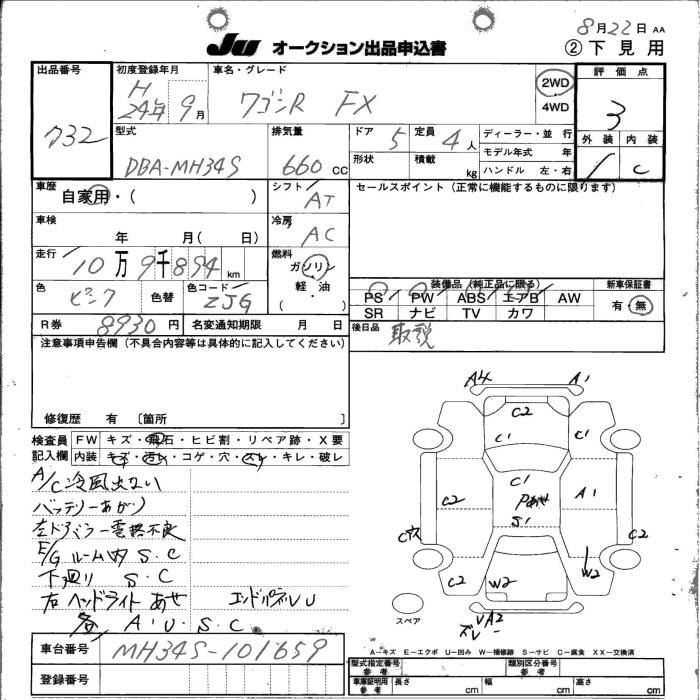 8月22日 AA
JU オークション出品申込書 ② 下見用
出品番号 初度登録年月 車名・グレード 評価点
732 H 24年 9月 ワゴンR FX 2WD 4WD 3
型式 排気量 ドア 定員 ディーラー・並行 外装 内装
DBA-MH34S 660 CC 5 4人 モデル年式 年 C
形状 積載 kg ハンドル 左・右
車歴 シフト セールスポイント (正常に機能するものに限ります)
自家用・( ) AT
車検 冷房
年 月( 日) AC
走行 燃料
10万9千894km ガソリン
軽・油
( )
色 色替 色コード 装備品 (純正品に限る) 新車保証書
ピンク ZJG PS PW ABS エアB AW 有・無
SR ナビ TV カワ
R券 8930円 名変通知期限 月 日 後日品 取説
注意事項申告欄 (不具合内容等は具体的に記入してください)
修復歴 有 [箇所 ]
検査員記入欄 FW キズ・飛石・ヒビ割・リペア跡・X要
内装 キズ・汚れ・コゲ・穴・スレ・キレ・破レ
A/C冷風出ない
バッテリーあがり
左ドアミラー電格不良
E/Gルーム内 S.C
下廻り S.C
右ヘッドライトあせ エンドパネルU
各 A.U.S.C
A4 A1
C2
C1 C1
C1
C2 Pあせ A1
S1
C穴 C2
C2 W2 W2
スペア
UA2
ズレ
A-キズ E-エクボ U-凹み W-補修跡 S-サビ C-腐食 XX-交換済
車台番号 MH34S-101659
登録番号
型式指定番号 参考 類別区分番号 参考
車庫証明用 参考 長さ cm 幅 cm 高さ cm